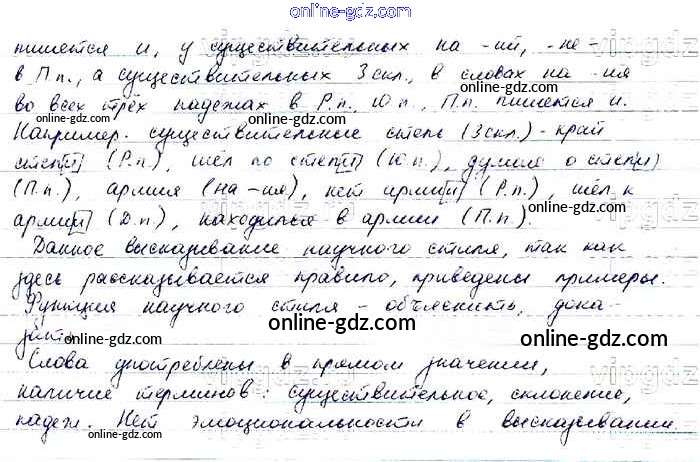 online-gdz.com
пишется и, у существительных на -ий, -ие -
в П.п., а существительных 3 скл., в словах на -ия
во всех трёх падежах в Р.п., Ю п., П.п. пишется и.
Например: существительное степь (3 скл.) - край
степ[и] (Р.п.), шёл по степ[и] (Ю п.), думал о степ[и]
(П.п.), армия (на -ия), нет арми[и] (Р.п.), шёл к
арми[и] (Д.п.), находился в армии (П.п.).
Данное высказывание научного стиля, так как
здесь рассказывается правило, приведены примеры.
Функция научного стиля - объяснить, дока-
зать.
Слова употреблены в прямом значении,
наличие терминов: существительное, склонение,
падеж. Нет эмоциональности в высказывании.
online-gdz.com
online-gdz.com
online-gdz.com
online-gdz.com
online-gdz.com
online-gdz.com
online-gdz.com
online-gdz.com
online-gdz.com
online-gdz.com